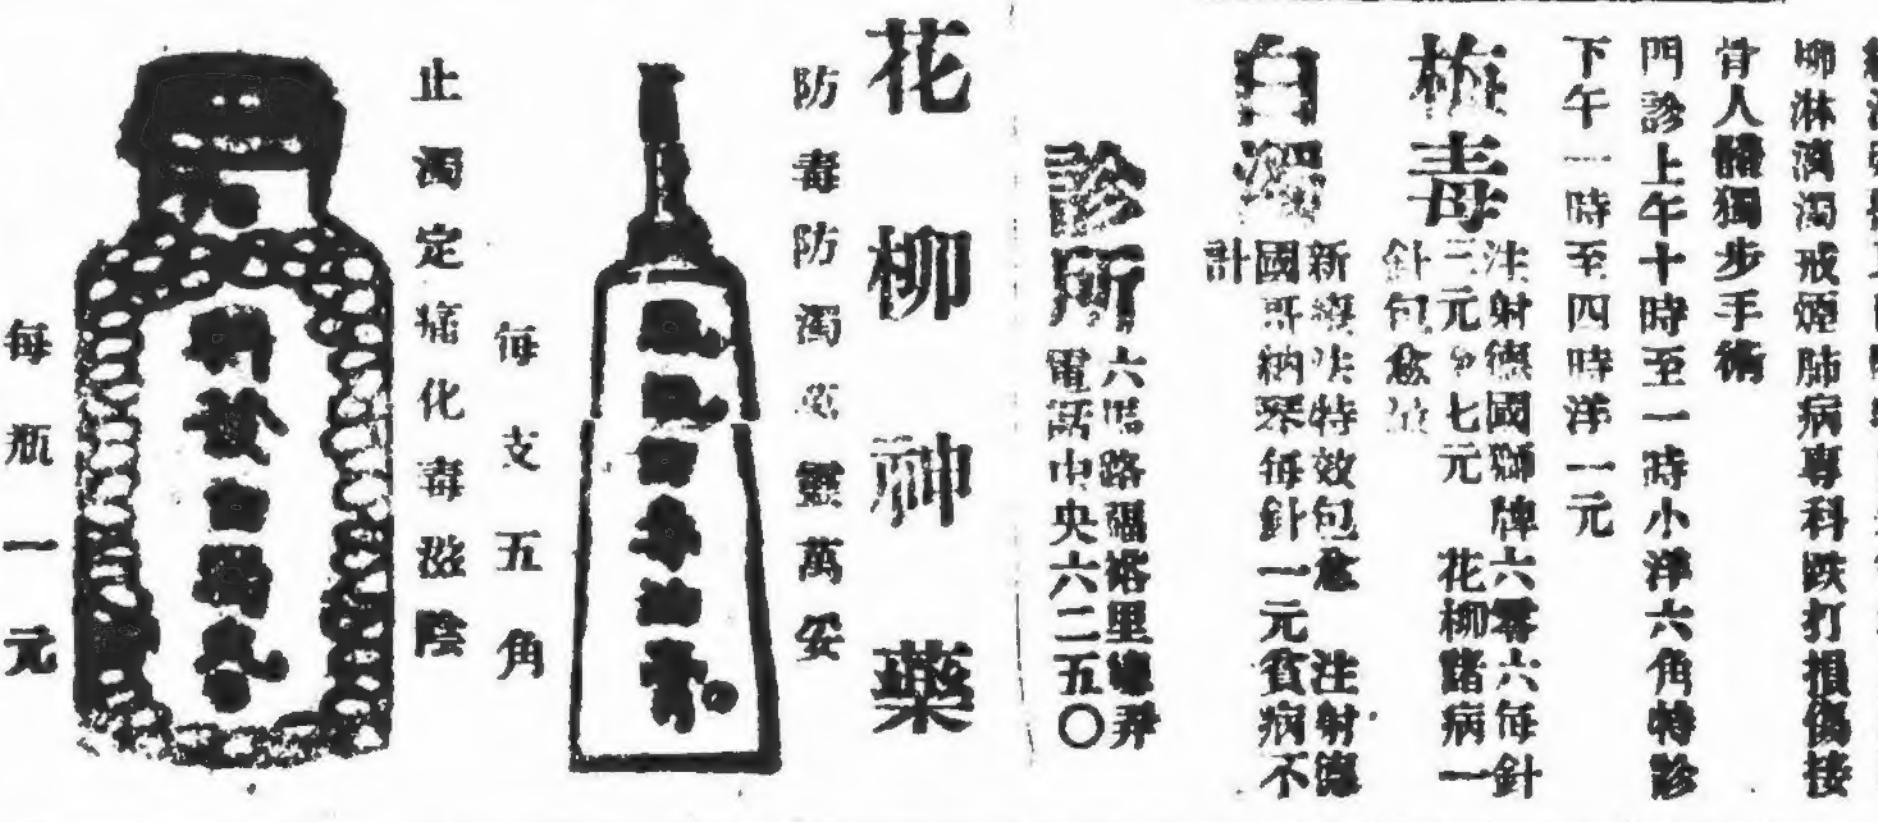 柳淋漓濁戒煙肺病專科跌打損傷接
骨人體獨步手術
門診上午十時至一時小洋六角特診
下午一時至四時洋一元
梅毒
注射德國獅牌六零六每針
三元 七元 花柳諸病一
針包愈
白濁
新發 特效包愈 注射德
國哥納琴每針一元貧病不
計
診所
六馬路福裕里 弄
電話中央六二五〇
花柳神藥
防毒防濁 靈萬妥
每支五角
止濁定痛化毒滋陰
白濁
每瓶一元